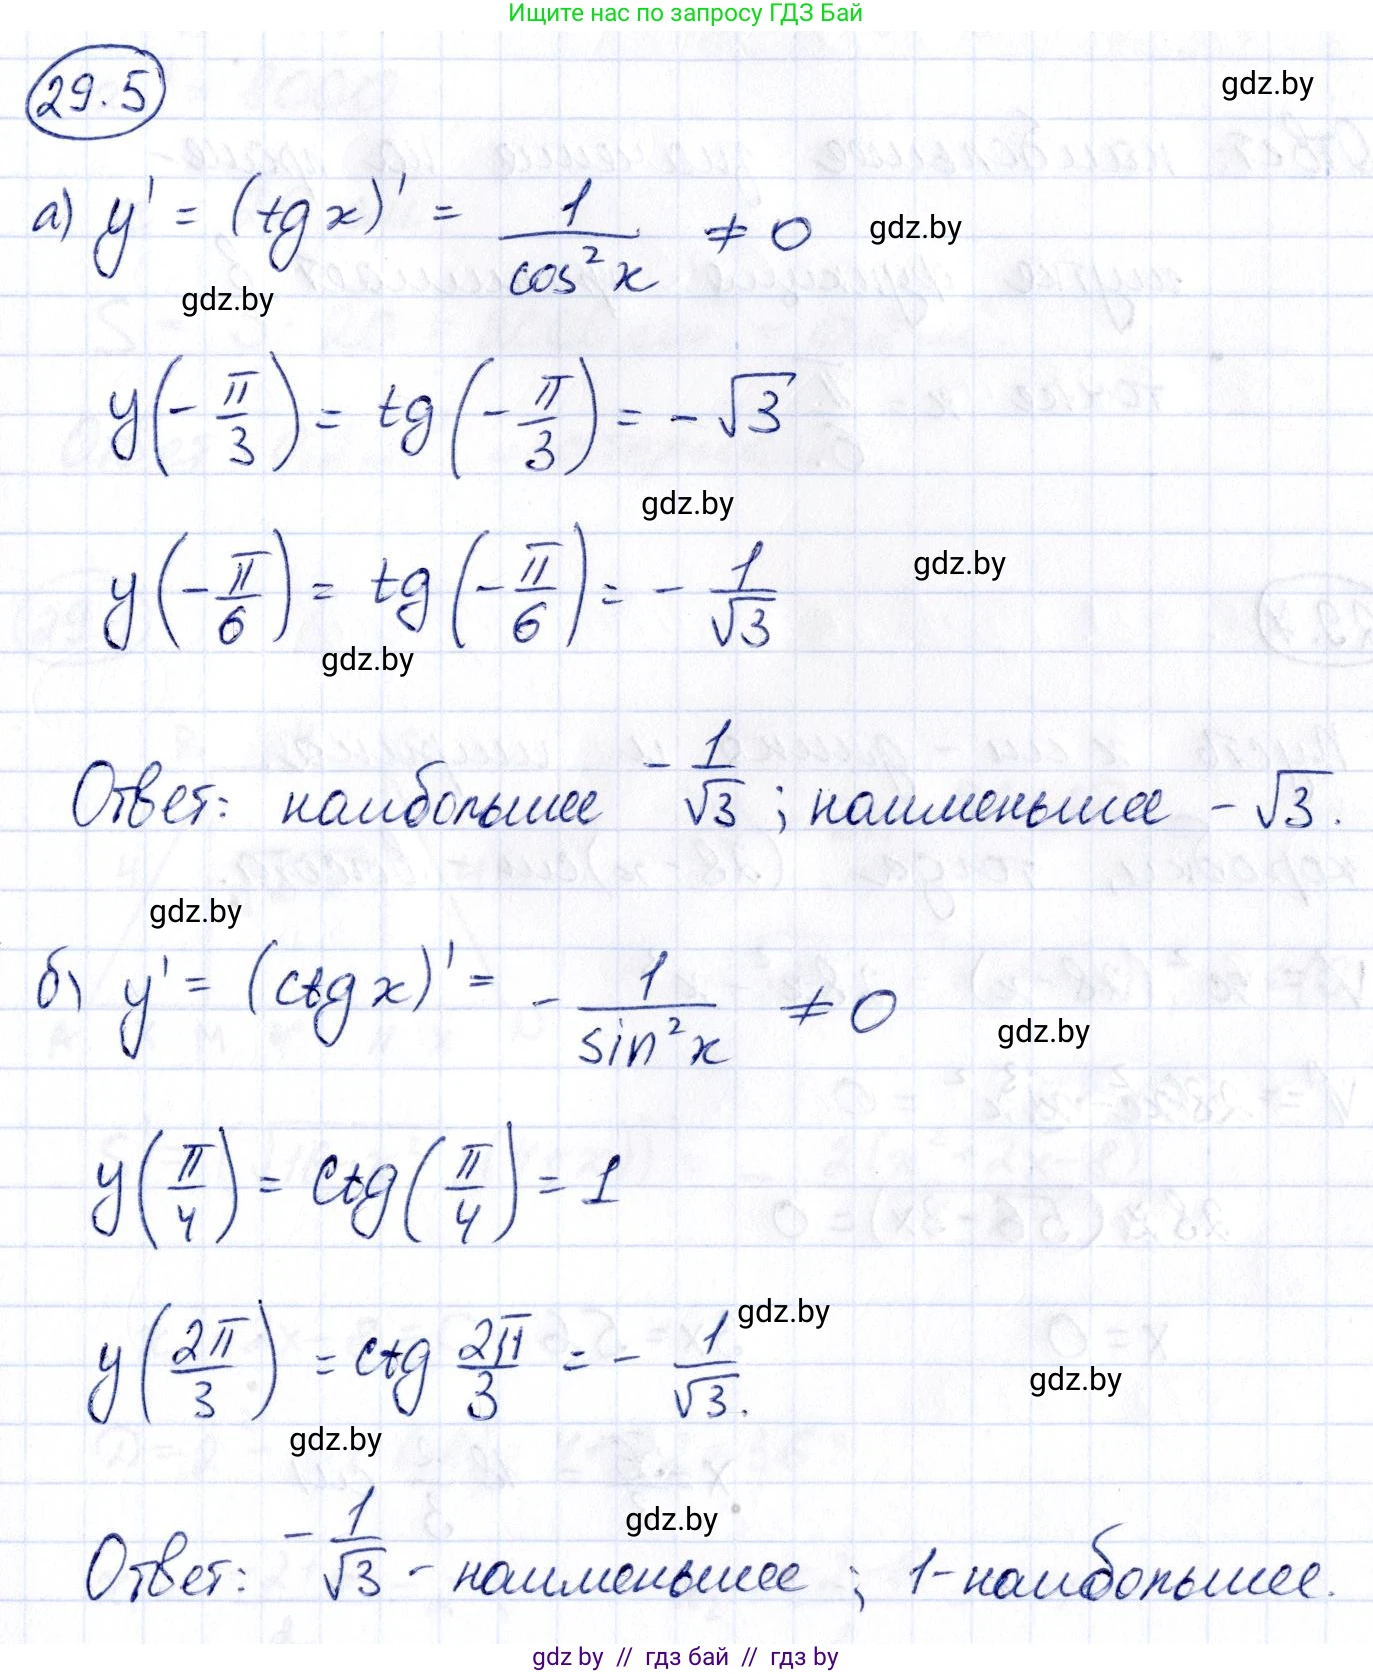 Ищите нас по запросу ГДЗ Бай
29.5
gdz.by
а) y' = (tg x)' = 1/cos²x ≠ 0
gdz.by
gdz.by
y(-π/3) = tg(-π/3) = -√3
gdz.by
y(-π/6) = tg(-π/6) = -1/√3
gdz.by
gdz.by
Ответ: наибольшее -1/√3; наименьшее -√3.
gdz.by
б) y' = (ctg x)' = -1/sin²x ≠ 0
gdz.by
y(π/4) = ctg(π/4) = 1
gdz.by
y(2π/3) = ctg 2π/3 = -1/√3.
gdz.by
gdz.by
gdz.by
Ответ: -1/√3 - наименьшее; 1 - наибольшее.
gdz by // гдз бай // гдз by